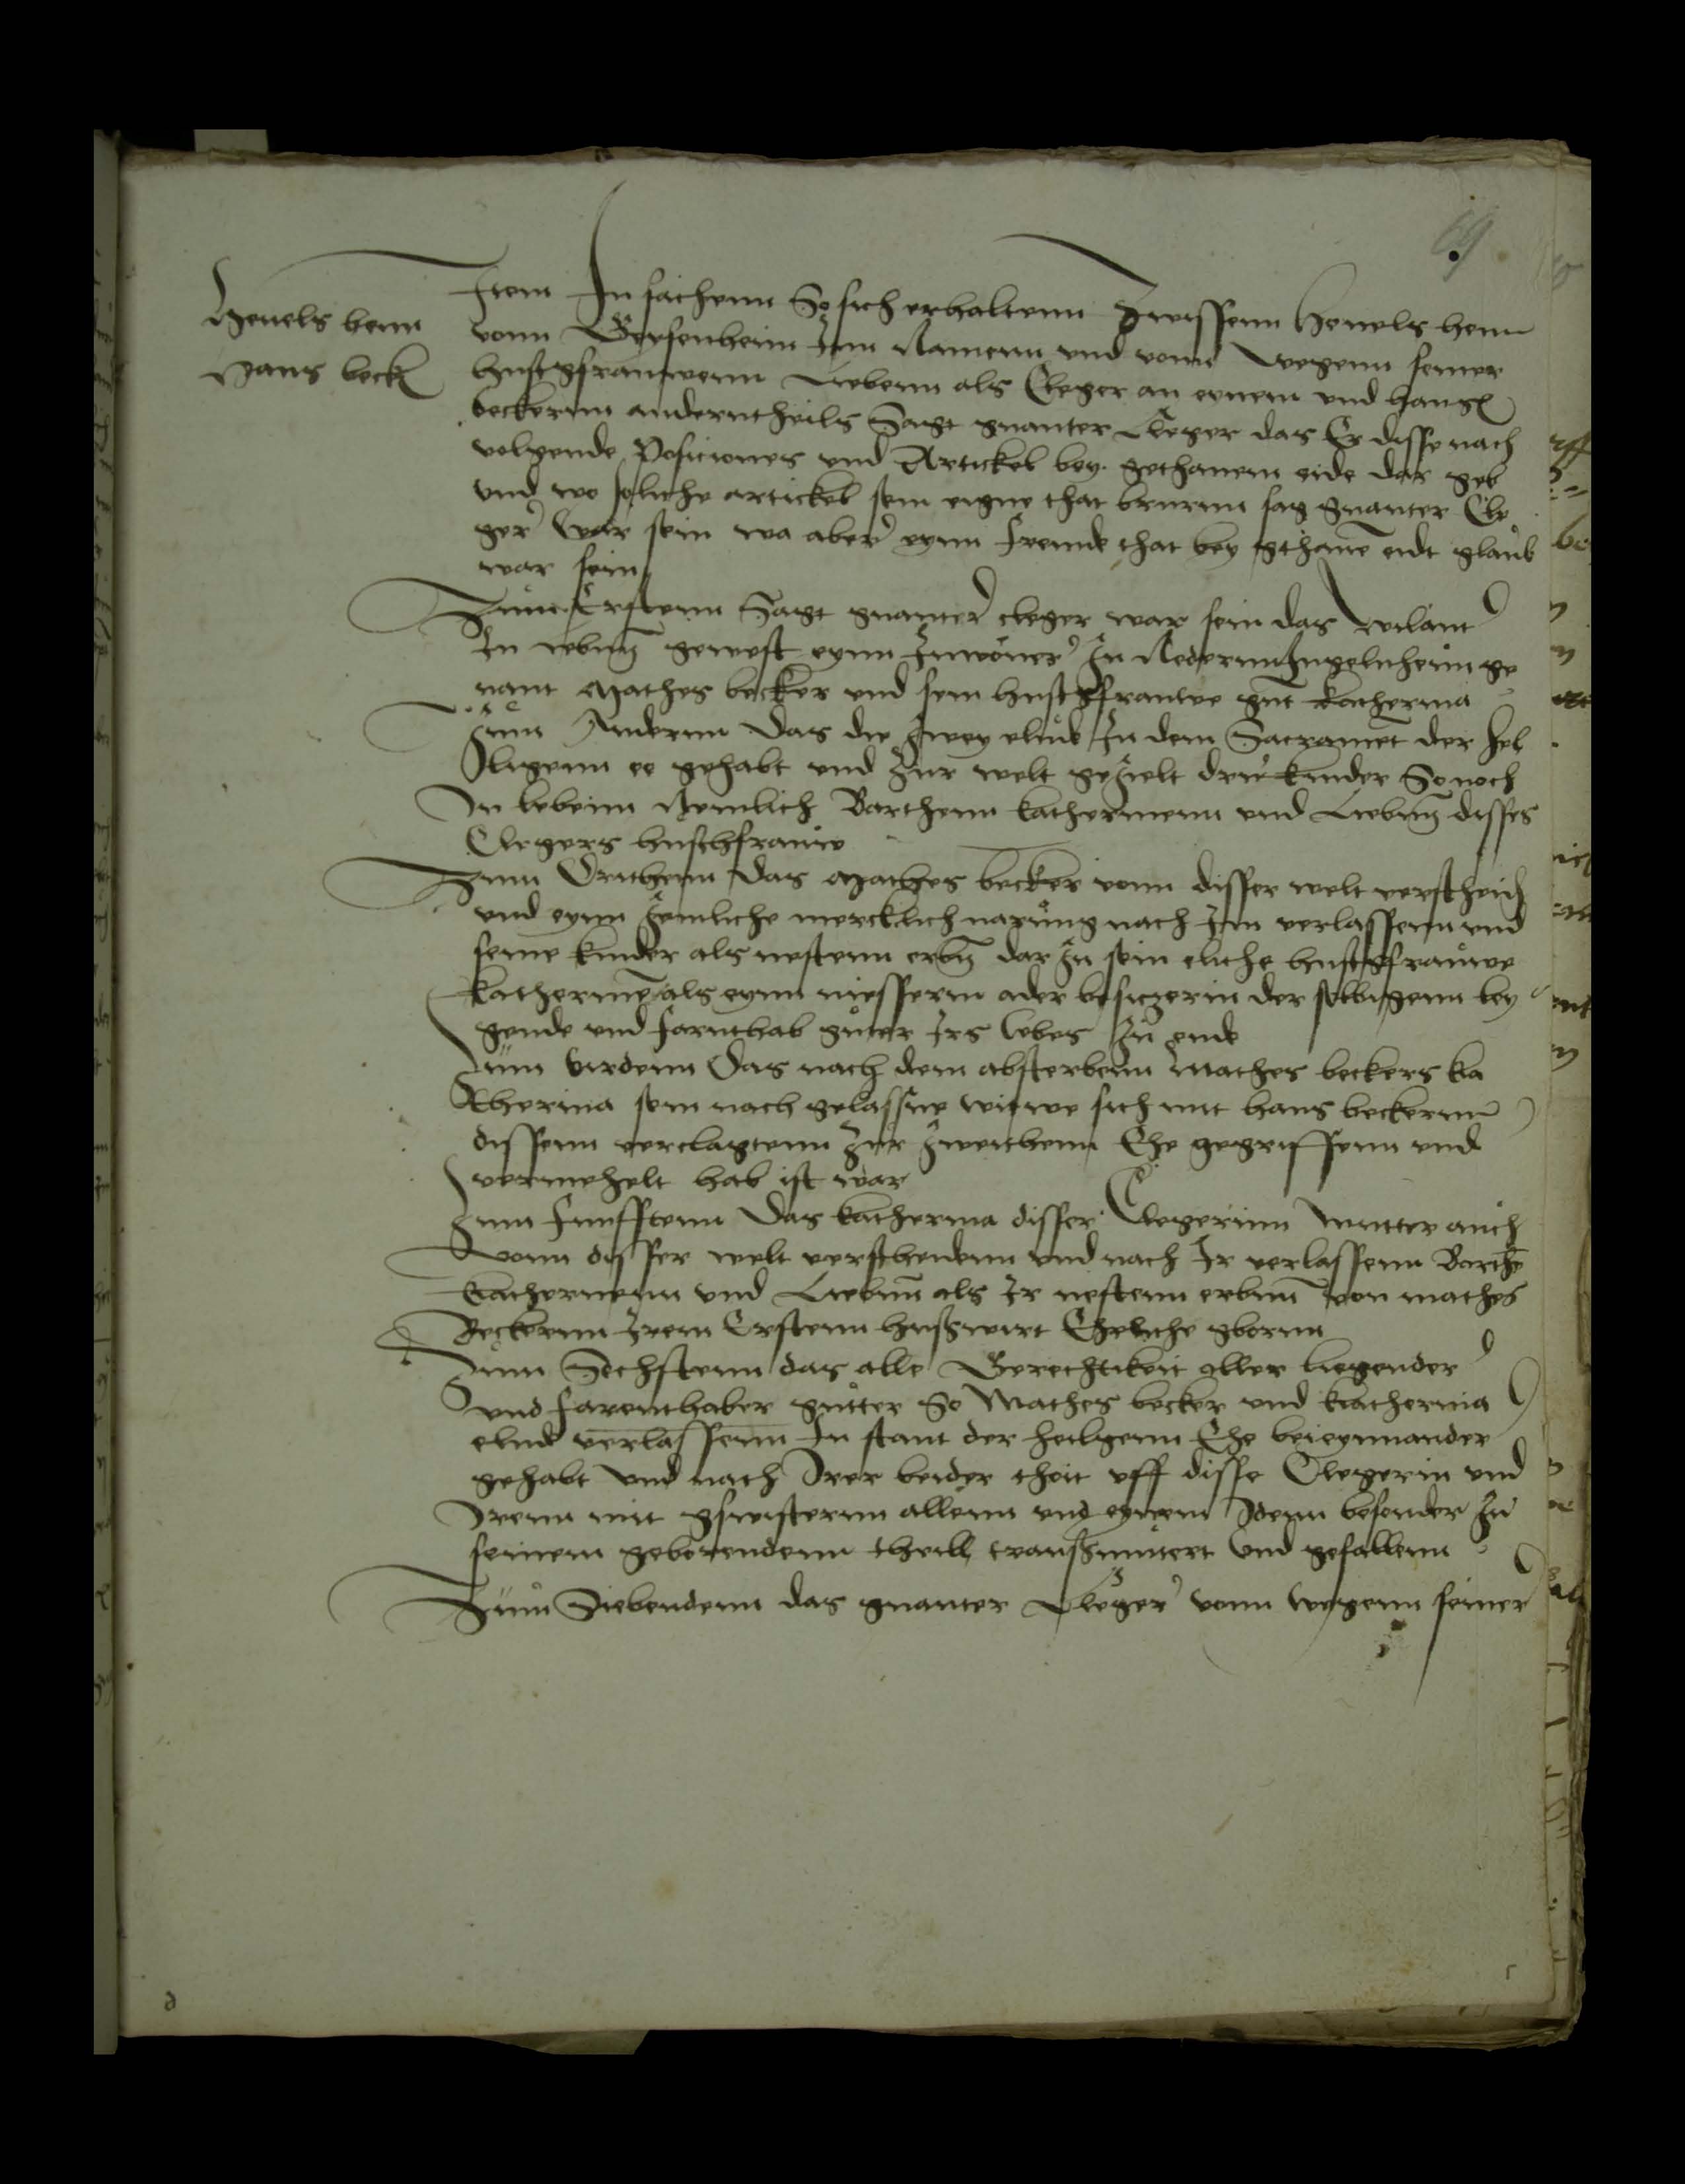 69
Henels henn
Hans beck
Item In sachenn So sich erhaltenn Zwissenn Henels henn
vonn Geysenheim Inn Namenn vnd vonn wegenn seiner
husgfrauwenn Liebenn als Cleger an eynem vnd hansß
beckernn anderntheils Sagt gnanter Cleger das Er disse nach
volgende Posiciones vnd Artickel bey gethanem eide dar geb
vnd wo soliche artickel sein eigne that berurnn sag gnanter Cle
ger War sein wa aber eynn fremde that bey gthanē eidt glaub
war sein
Zum Erstenn Sagt gnanter cleger war sein das wilant
In lebenn gewest eynn Inwoner In Nedernn Ingelnheim ge
nant Mathes becker vnd sein husgfrauwe gnt Katherina
Zum Andernn das die zwey elude In dem Sacramēt der hel
ligenn ee gehabt vnd zur welt gezielt dru kinder So noch
In lebenn Nemlich Barthenn kathermenn vnd Liebenn disses
Clegers husthfrauw
Zum Dritthenn das Mathes becker vonn disser welt verscheidē
vnd eynn zemliche mercklich narung nach Im verlassenn vnd
seine kinder als nestenn erbenn dar zu sein eliche husgfrauwe
Kathermē als eynn niesserin ader besiczerin der selbigenn ley
gende vnd farnthab guter Irs lebes zu ende
Zum virdenn Das nach dem absterbenn Mathes beckers ka
therina sein nach gelassne witwe sich mit hans beckernn
dissenn verclagtenn zur zweithenn Ehe gegriffenn vnd
vermehelt hab ist war
Zum funfftenn Das katherina disser Clegerinn mutter auch
vonn disser welt verscheydenn vnd nach Ir verlassenn Barthē
Kathermenn vnd Liebenn als Ir nestenn erbenn von mathes
Beckernn Irem Erstenn hußwirt Eheliche gbornn
Zum Sechstenn das alle Gerechtikeit aller liegender
vnd farenthaber gutter So Mathes becker vnd katherina
elude verlassenn In stant der heilgenn Ehe beieynnander
gehabt vnd nach Irer beider thoit vff disse Clegerin vnd
Irenn mit gswisternn allenn vnd eynem Idenn besonder zu
seinem geborendenn theill transßmitert vnd gefallenn
Zum Siebendenn das gnanter Cleger vonn wegenn seiner